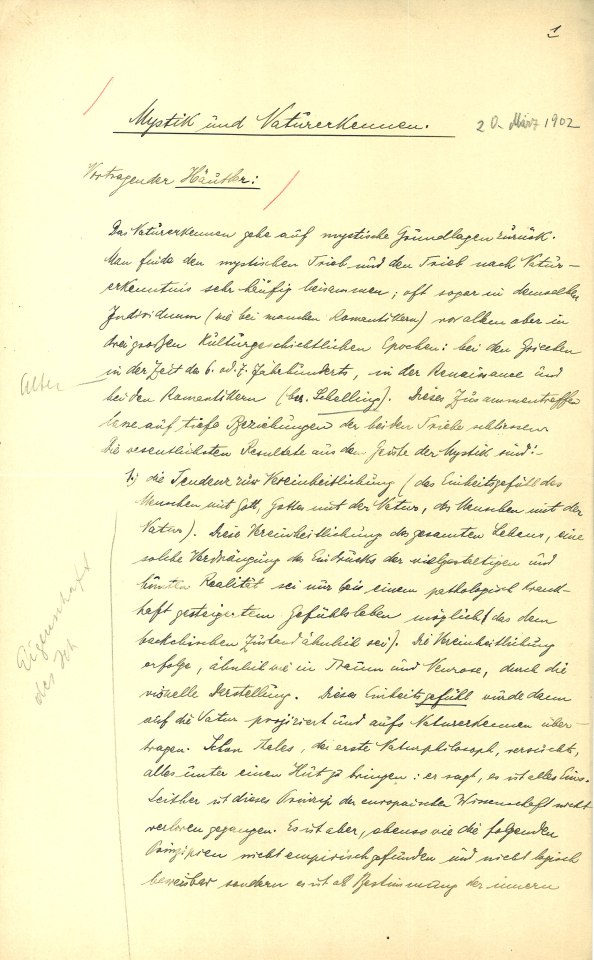 1
Mystik und Naturerkennen.
20. März 1902
Vortragender Häutler:
Das Naturerkennen gehe auf mystische Grundlagen zurück.
Man finde den mystischen Trieb und den Trieb nach Natur-
erkenntnis sehr häufig beisammen; oft sogar in demselben
Individuum (wie bei manchen Romantikern) vor allem aber in
drei großen Kulturgeschichtlichen Epochen: bei den Griechen
in der Zeit des 6. od. 7. Jahrhunderts, in der Renaissance und
Alter
bei den Romantikern (bes. Schelling). Dieses Zusammentreffen
lasse auf tiefe Beziehungen der beiden Triebe schliessen.
Die wesentlichsten Resultate aus dem Geiste der Mystik sind:
1.) die Tendenz zur Vereinheitlichung (das Einheitsgefühl des
Menschen mit Gott, Gottes mit der Natur, des Menschen mit der
Natur). Diese Vereinheitlichung des gesamten Lebens, eine
solche Verdrängung des Eindrucks der vielgestaltigen und
bunten Realität sei nur bei einem pathologisch krank-
haft gesteigertem Gefühlsleben möglich (das dem
bacchischen Zustand ähnlich sei). Die Vereinheitlichung
Eigenschaft
des Ich
erfolge, ähnlich wie in Traum und Neurose, durch die
visuelle Darstellung. Dieses Einheitsgefühl wurde dann
auf die Natur projiziert und aufs Naturerkennen über-
tragen. Schon Tales, der erste Naturphilosoph, versuchte,
alles unter einen Hut zu bringen: er sagt, es ist alles Eins.
Seither ist dieses Prinzip der europäischen Wissenschaft nicht
verloren gegangen. Es ist aber, ebenso wie die folgenden
Prinzipien nicht empirisch gefunden und nicht logisch
beweisbar sondern es ist als Bestimmung der innern